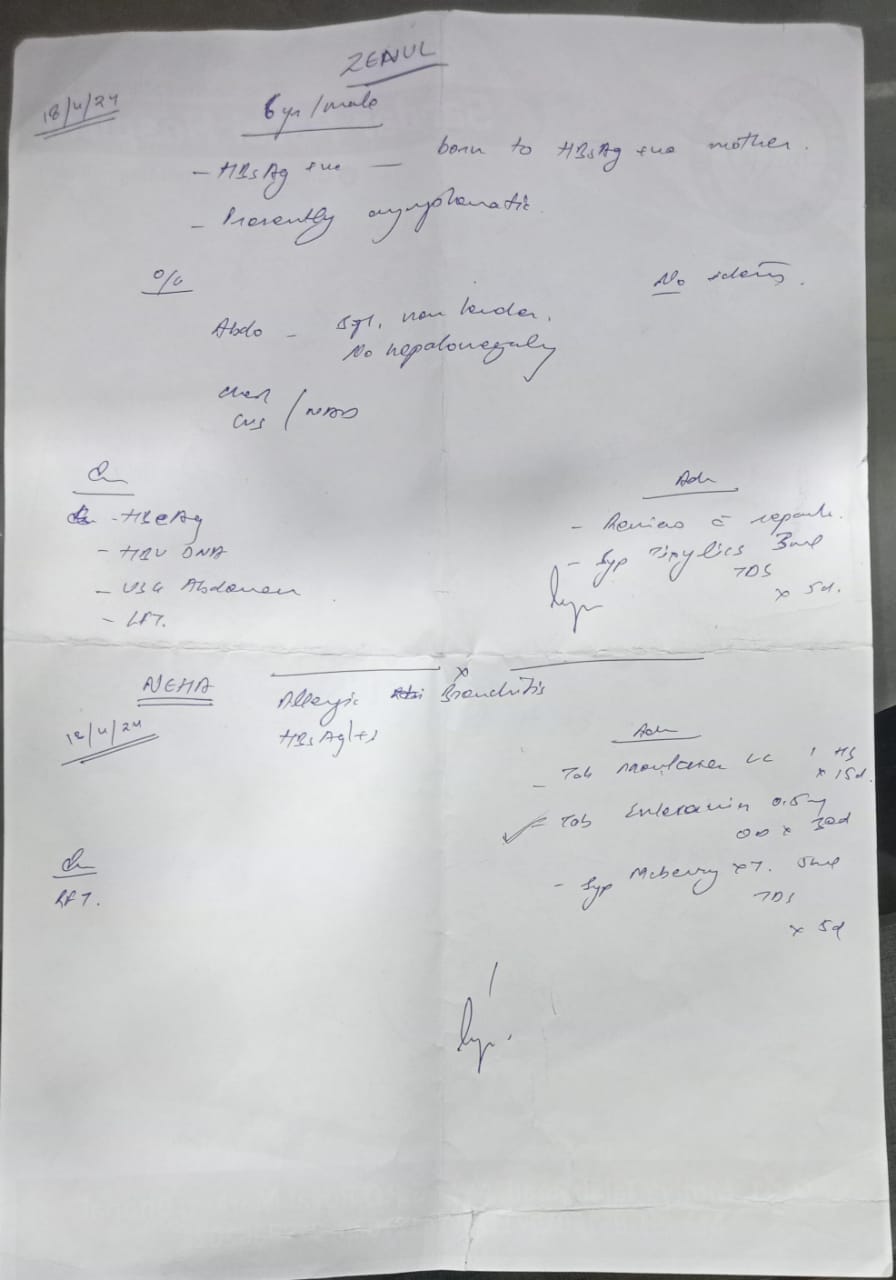 ZENUL
18/4/24
6 yr / male
- HBsAg +ve — born to HBsAg +ve mother.
- Presently asymptomatic
O/E
No icterus.
Abdo - Soft, non tender.
No hepatomegaly
Chest
CVS / NAD
Adv
- HBeAg
- HBV DNA
- USG Abdomen
- LFT.
Adv
- Review c̄ reports.
- Syp 3ml
TDS
x 5d.
x
NEHA
18/4/24
Allergic Bronchitis
HBsAg(+)
Adv
- Tab Montair LC 1 HS
x 15d.
- Tab Entecavir 0.5mg
OD x 30d
- Syp 5ml
TDS
x 5d